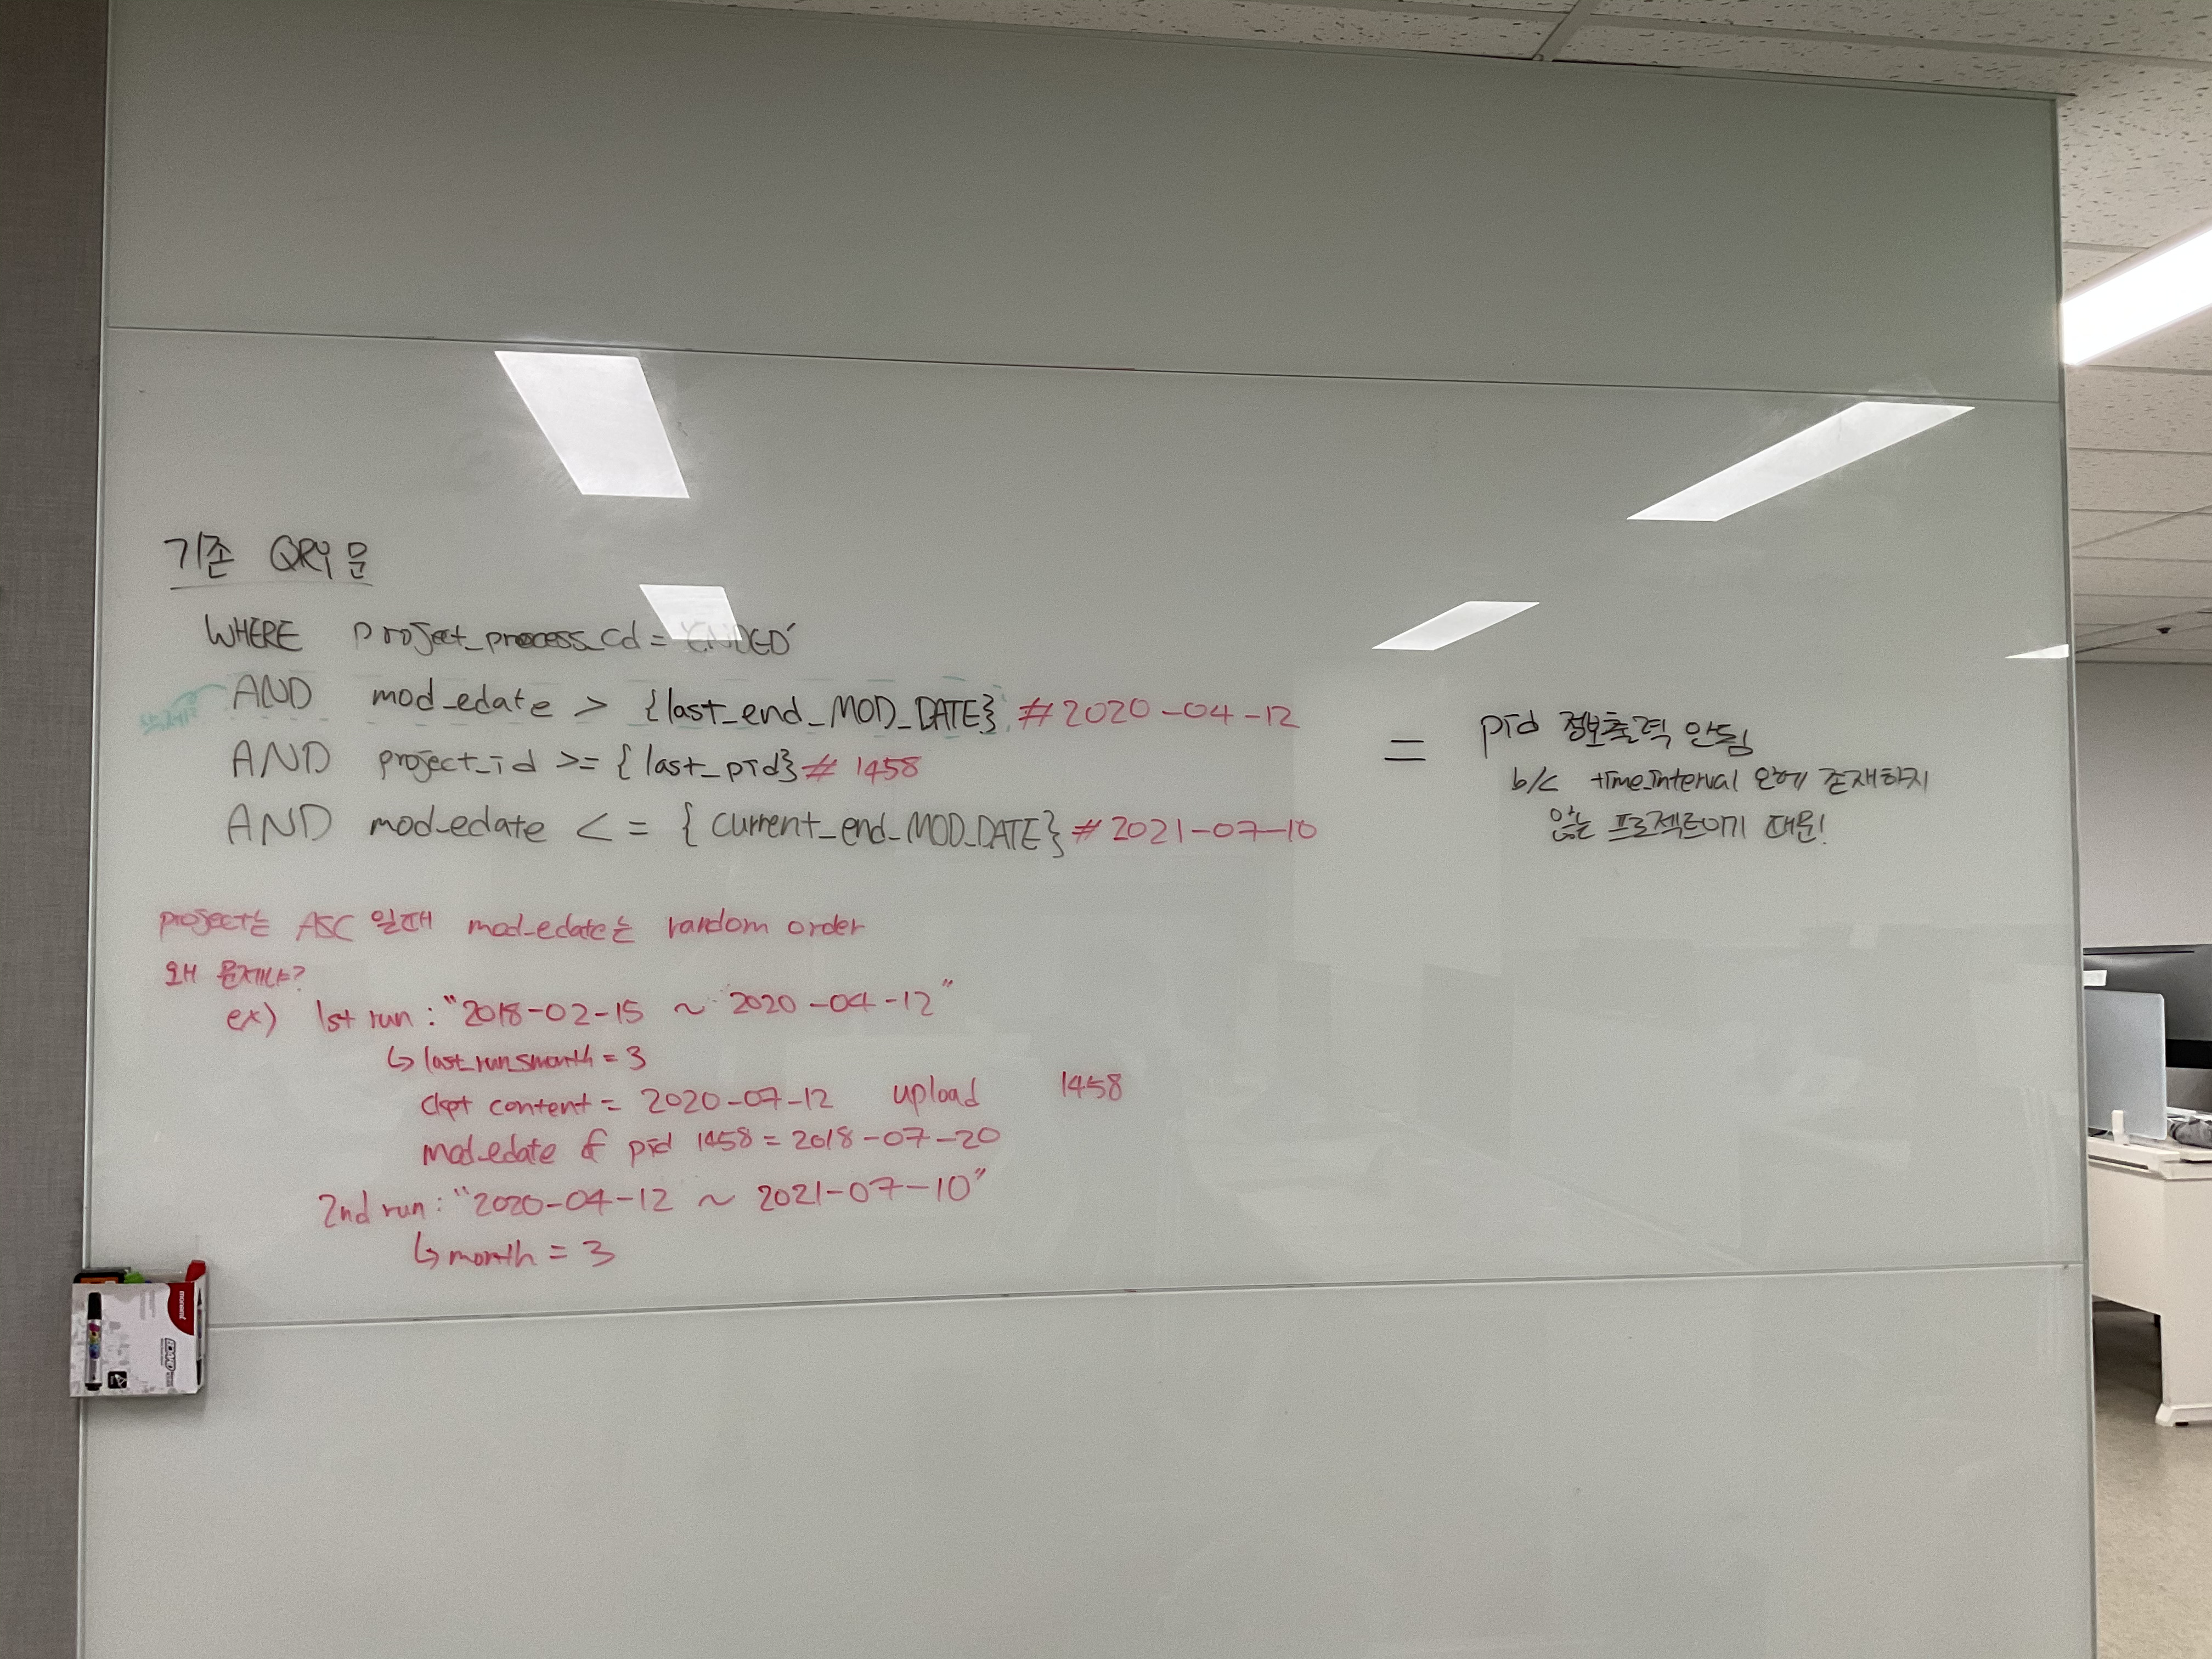 기존 QRY문
WHERE project_process_cd = 'ENDED'
AND mod_edate > {last_end_MOD_DATE} #2020-04-12
AND project_id >= {last_pid} # 1458
AND mod_edate <= {current_end_MOD_DATE} #2021-07-10
= pid 정보출력 안됨
b/c time_interval 안에 존재하지
않는 프로젝트이기 때문!
project는 ASC 일때 mod_edate는 random order
왜 문제냐?
ex) 1st run : "2018-02-15 ~ 2020-04-12"
↳ last_run_smonth = 3
ckpt content = 2020-07-12 upload 1458
mod_edate of pid 1458 = 2018-07-20
2nd run : "2020-04-12 ~ 2021-07-10"
↳ month = 3